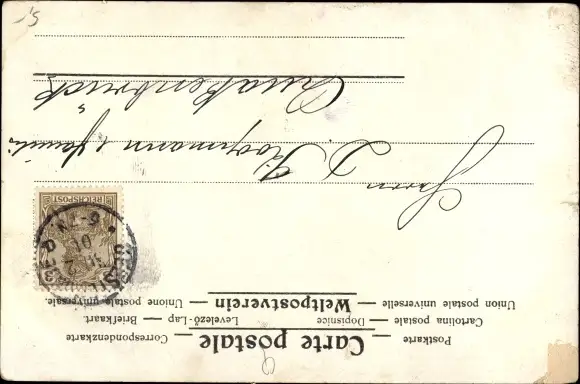 Postkarte — Carte postale — Correspondenzkarte
Cartolina postale — Dopisnice — Levelező-Lap — Briefkaart.
Union postale universelle — Weltpostverein — Unione postale universale.
REICHSPOST
Herrn
D. Koopmann &
Quakenbrück